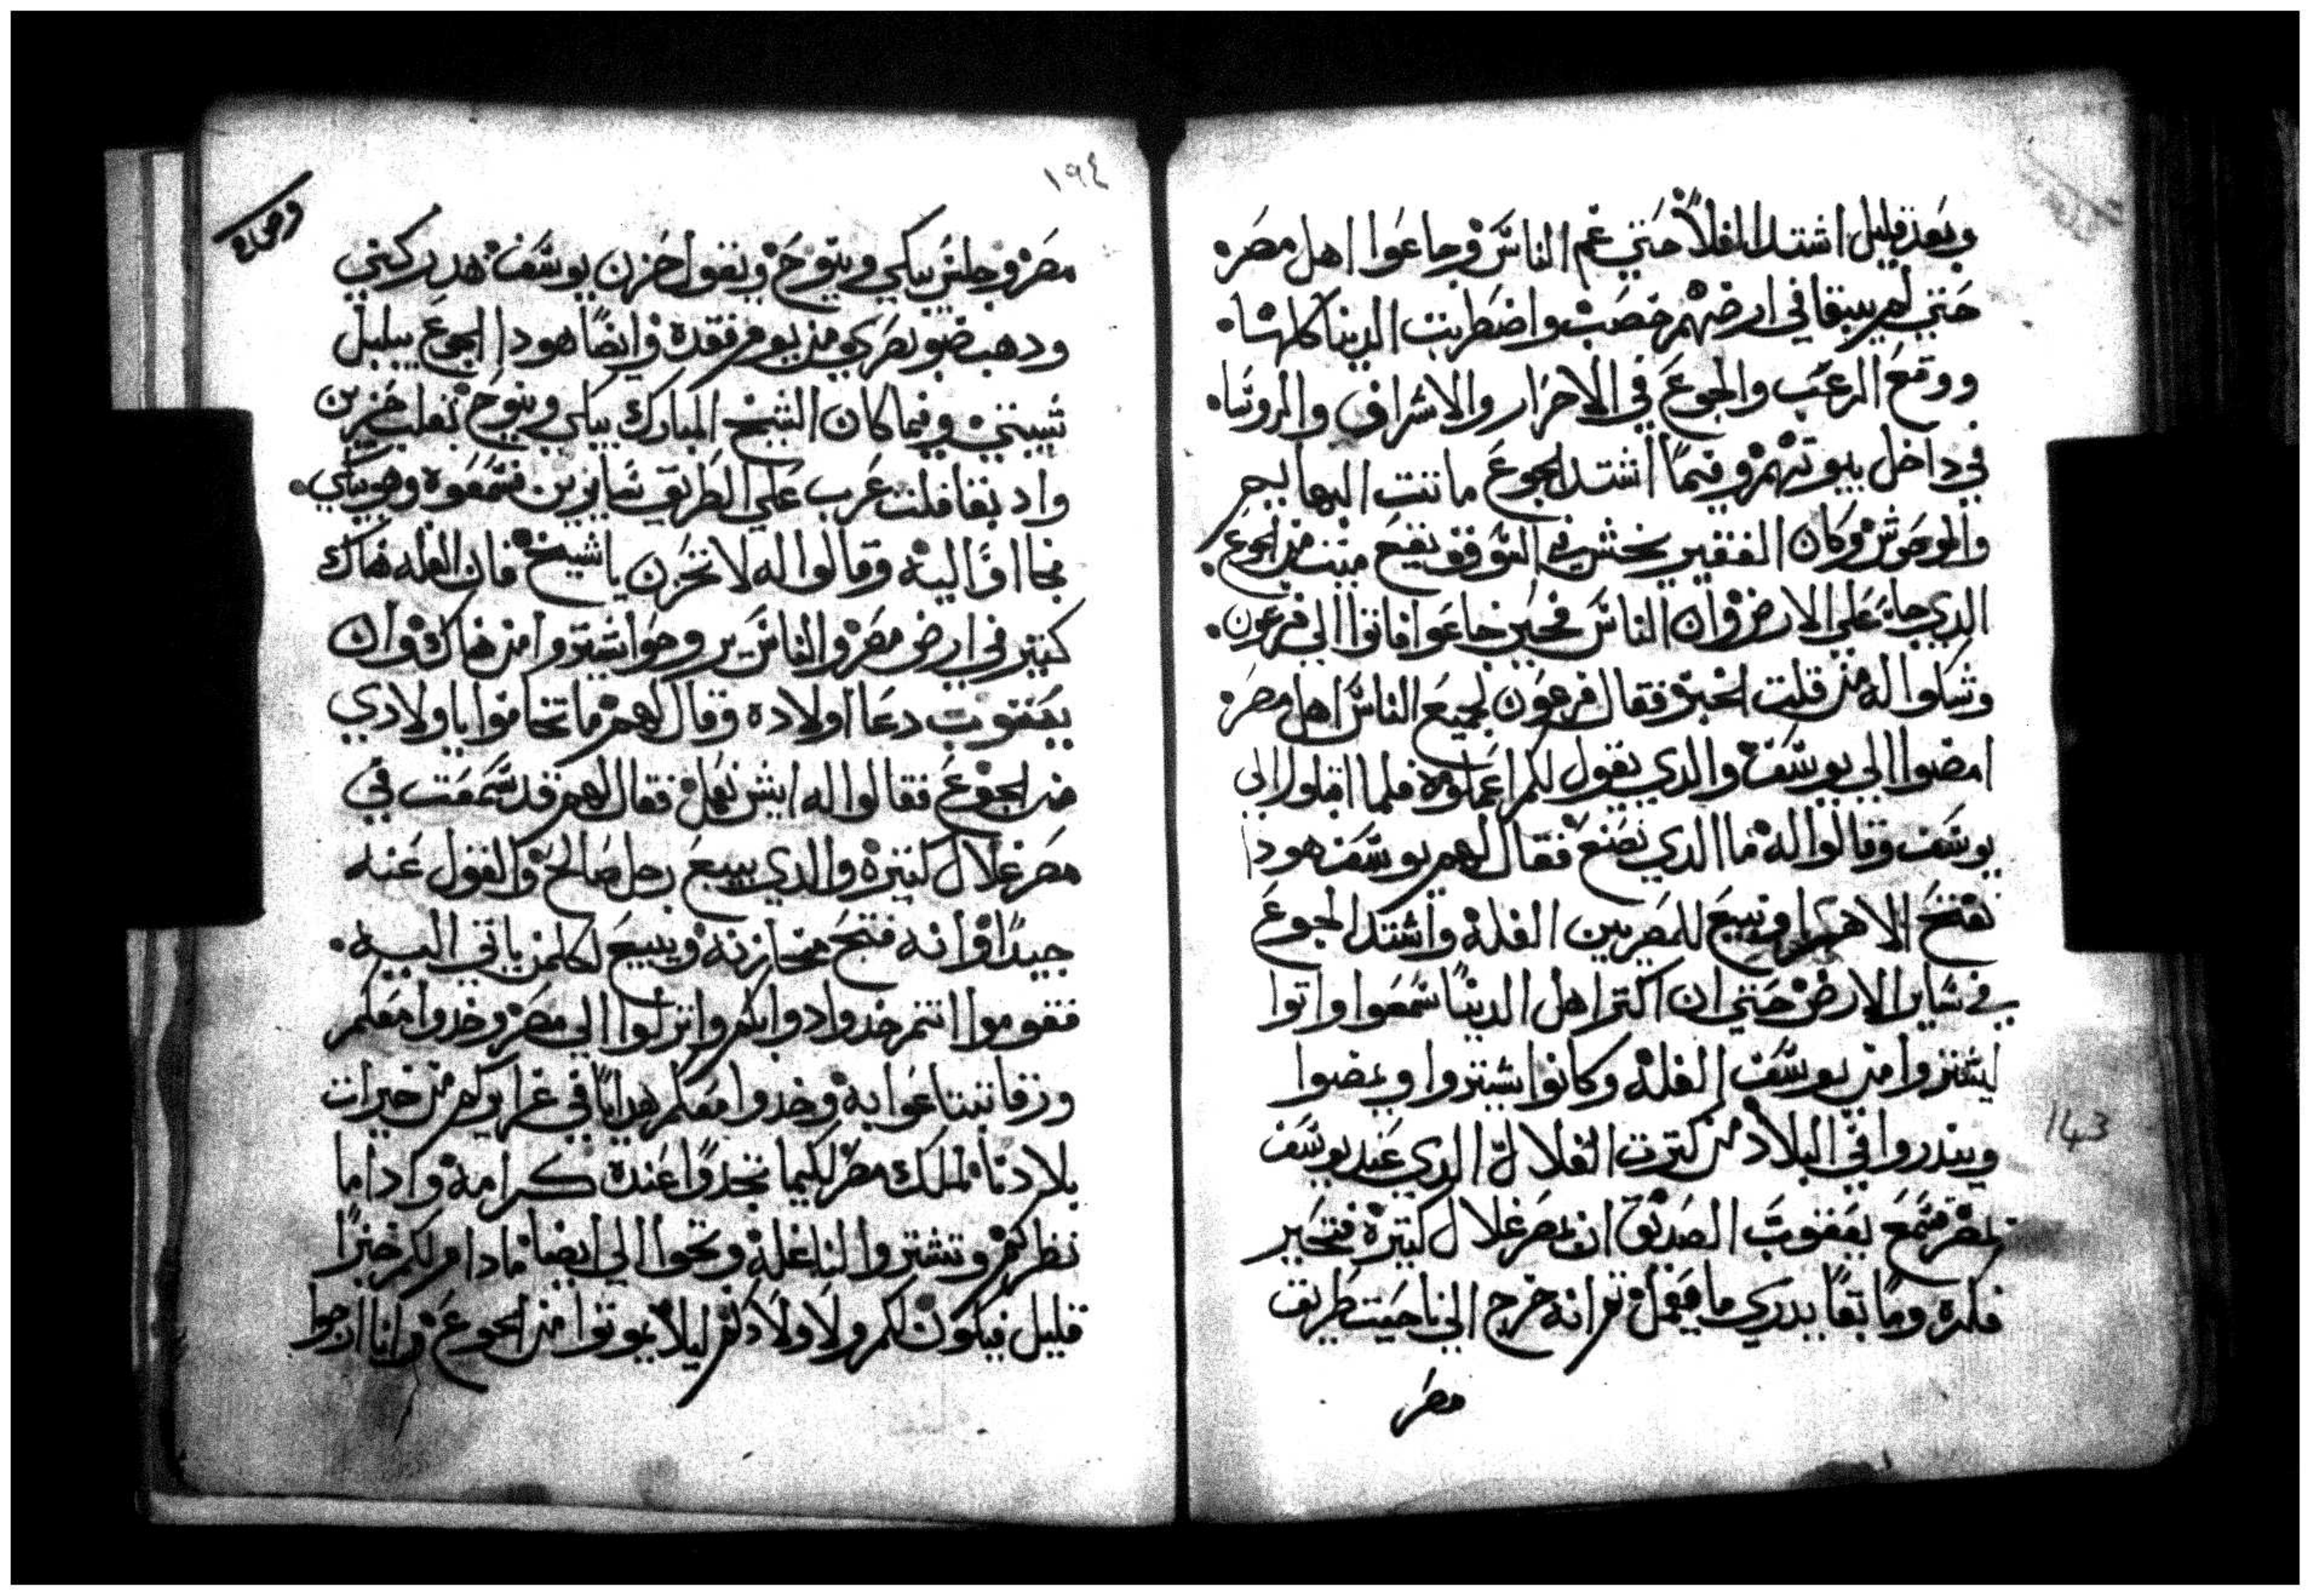 وبعد قليل اشتد الغلاً حتي غم الناس وجاعوا اهل مصر
حتي لم يبقا في ارضهم خصب واضطربت الدينا كلها
ووقع الرعب والجوع في الاحرار والاشراف والروسا
في داخل بيوتهم وفيما اشتد الجوع ماتت البهايم
والوحوش وكان الفقير يمشي في السوق يقع ميت من الجوع
الدي جا علي الارض وان الناس فحين جاعوا فاتوا الي فرعون
وشكوا له من قلت الخبز فقال فرعون لجميع الناس اهل مصر
امضوا الي يوسف والدي يقول لكم اعملوه فلما اقبلوا الي
يوسف وقالوا له ما الدي نصنع فقال لهم يوسف هودا
نفتح الاهرا ونبيع للمصريين الغله واشتد الجوع
في ساير الارض حتي ان اكتر اهل الدينا سمعوا واتوا
ليشتروا من يوسف الغله وكانوا يشتروا ويمضوا
ويندروا في البلاد من كترت الغلال الدي عند يوسف
بمصر فسمع يعقوب الصديق ان بمصر غلال كتيرة فتحير
فكره وما بقا يدري ما يعمل تم انه خرج الي ناحيت طريق
مصر
١٩٤
مصر وجلس يبكي وينوح ويقول حزن يوسف هد ركبتي
ودهب ضو بصري من يوم فقده وايضا هودا الجوع يبلبل
شيبتي وفيما كان الشيخ المبارك يبكي وينوح بقلب حزين
واد بقافلت عرب علي الطريق سايرين فسمعوه وهو يبكي
فجااوا اليه وقالوا له لا تحزن يا شيخ فان الغله هناك
كتير في ارض مصر والناس يروحوا يشتروا من هناك وان
يعقوب دعا اولاده وقال لهم ما تخافوا يا ولادي
من الجوع فقالوا له ايش نعمل فقال لهم قد سمعت في
مصر غلال كتيره والدي يبيع رجل صالح والقول عنه
جيدا وانه فتح مخازنه ويبيع لكلمن ياتي اليه
فقوموا انتم خدوا دوابكم وانزلوا الي مصر وخدوا معكم
ورقا تبتاعوا به وخدوا معكم هدايا في غرايركم من خيرات
بلادنا لملك مصر لكيما تجدوا عنده كرامه وادا ما
نظركم وتشتروا لنا غله وتجوا الي ايضا ما دام لكم خبزا
قليل فيكون لكم ولاولادكم ليلا يموتوا من الجوع وانا ارجوا
143